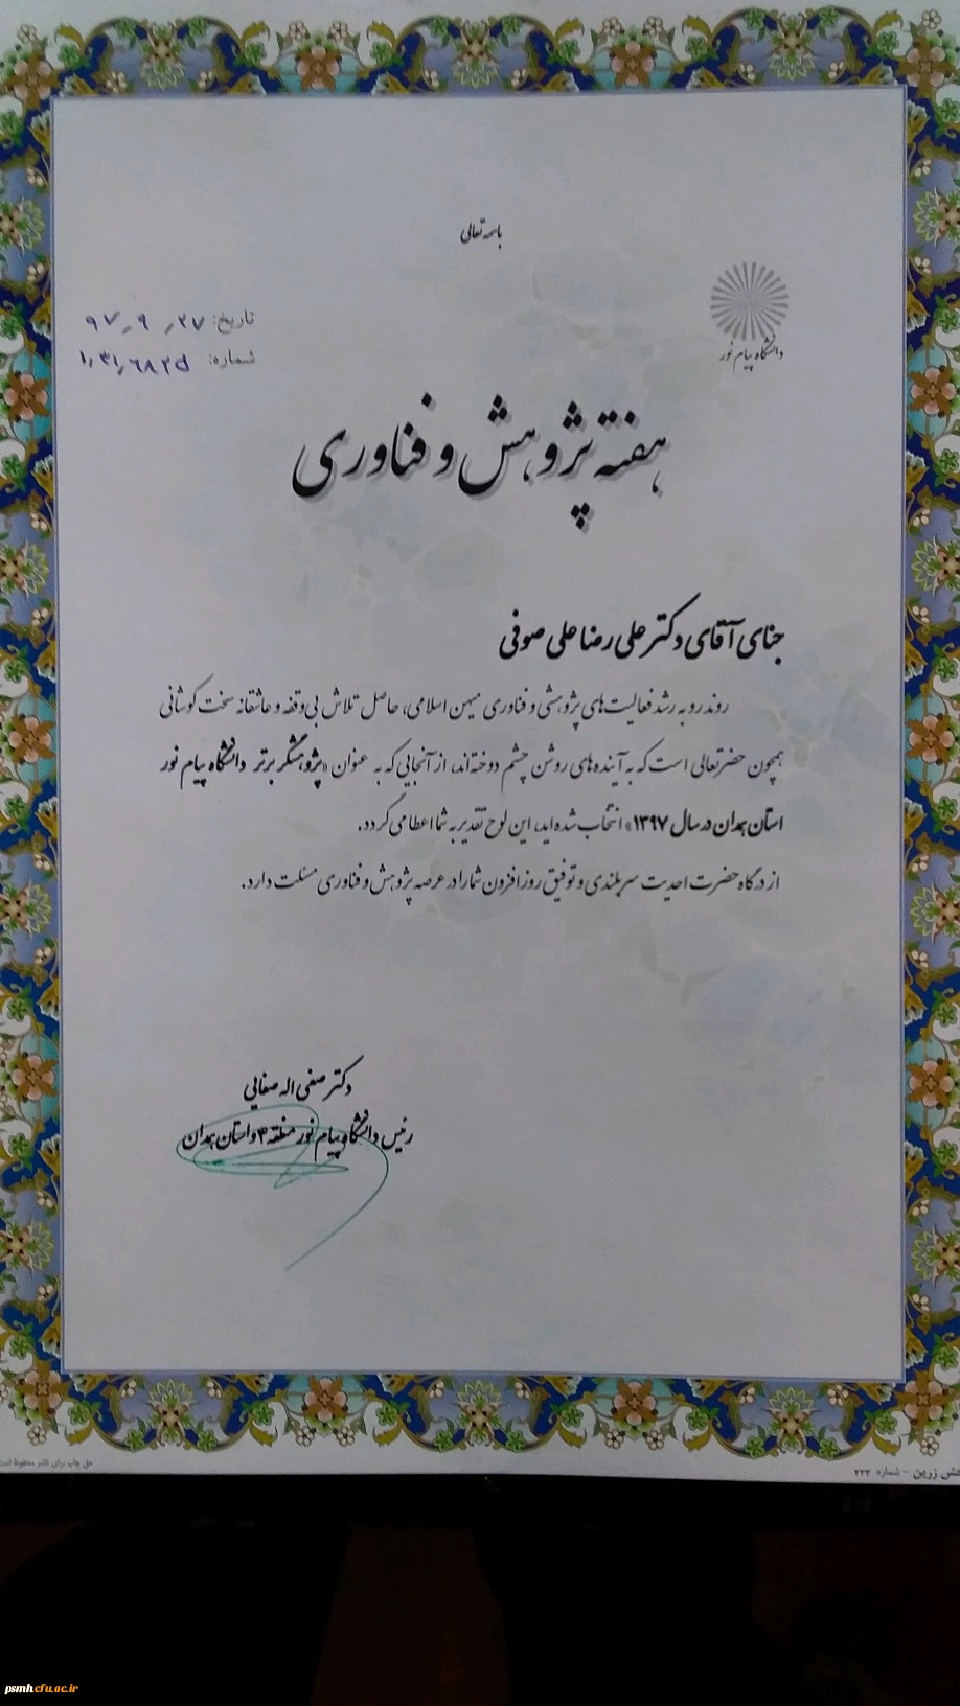 باسمه تعالی
دانشگاه پیام نور
تاریخ: ۹۷ ٫ ۹ ٫ ۲۷
شماره:
هفته پژوهش و فناوری
جنای آقای دکتر علی رضا علی صوفی
روند رو به رشد فعالیت‌های پژوهشی و فناوری میهن اسلامی، حاصل تلاش بی‌وقفه و عاشقانه سخت کوشانی
همچون حضرتعالی است که به آینده‌های روشن چشم دوخته‌اند، از آنجایی که به عنوان «پژوهشگر برتر دانشگاه پیام نور
استان همدان در سال ۱۳۹۷» انتخاب شده‌اید، این لوح تقدیر به شما اعطا می گردد.
از درگاه حضرت احدیت سربلندی و توفیق روزافزون شما را در عرصه پژوهش و فناوری مسئلت دارد.
دکتر صفی اله صفایی
رئیس دانشگاه پیام نور منطقه ۴ و استان همدان
زرین - شماره ۴۲۳
حق چاپ برای ناشر محفوظ است
psmh.cfu.ac.ir